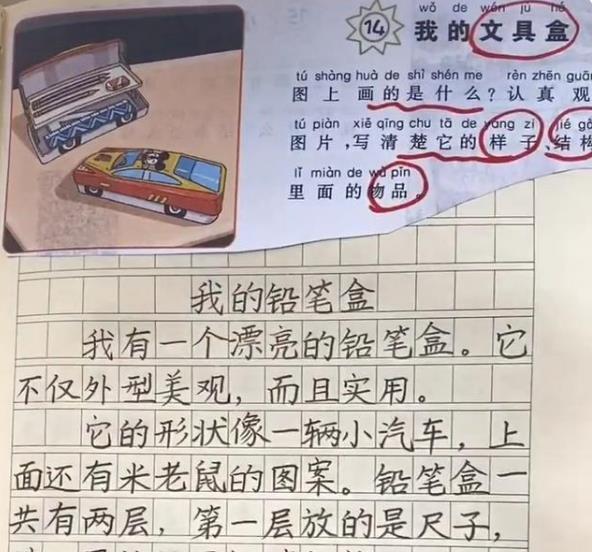 wǒ de wén jù hé
14 我的文具盒
tú shàng huà de shì shén me rèn zhēn guān
图上画的是什么？认真观
tú piàn xiě qīng chu tā de yàng zi jié gò
图片，写清楚它的样子、结构
lǐ miàn de wù pǐn
里面的物品。
我的铅笔盒
我有一个漂亮的铅笔盒。它
不仅外型美观，而且实用。
它的形状像一辆小汽车，上
面还有米老鼠的图案。铅笔盒一
共有两层，第一层放的是尺子，